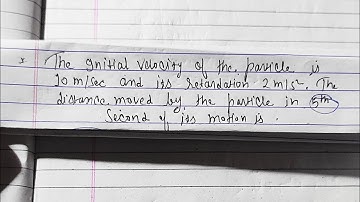 * The gnitial velocity of the particle is
10 m/sec and its retardation 2 m/s². The
distance moved by the particle in 5th
Second of its motion is.